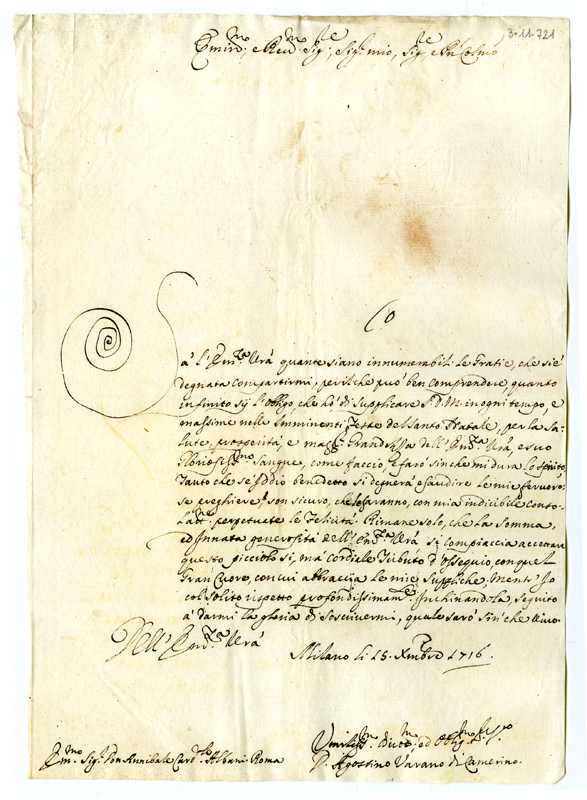 3-11-721
Emin.mo e Reu.mo Sig.re, Sig.r mio, Sig.re e Pñ Colmo
Sà l'Em.za Vrã quante siano innumerabili le Gratie, che si è
degnata compartirmi, perilche può ben comprendere, quanto
infinito sij l'obligo, che hò di supplicare S. D. M. in ogni tempo, e
massime nelle Imminenti feste del Santo Natale, per la Sa-
lute, prosperità, e magg.r Grandezza dell'Em.za Vrã, e suo
Glorioliss.mo Sangue, come faccio, e farò sin che mi dura lo spirito,
Tanto che se Iddio benedetto si degnerà esaudire le mie feruoro-
se preghiere, son sicuro, che saranno, con mia indicibile conso-
lat.ne perpetuate le Felicità. Rimane solo, che la Somma,
ed Innata generosità dell'Em.za Vrã si compiaccia accettare
questo picciolo sì, mà cordiale Tributo d'ossequio, con quel
Gran Cuore, con cui abbraccia le mie Suppliche; Mentr'Io
col solito rispetto profondissimam.te Inchinandola, seguito
à darmi la gloria di soscriuermi, quale sarò sin che viuo.
Dell'Em.za Vrã
Milano li 15. Xmbre 1716.
Vmiliss.mo Diuot.mo, ed Obblig.mo Ser.re
Em.mo Sig.r Don Annibale Card.le Albani. Roma
D. Agostino Varano di Camerino.